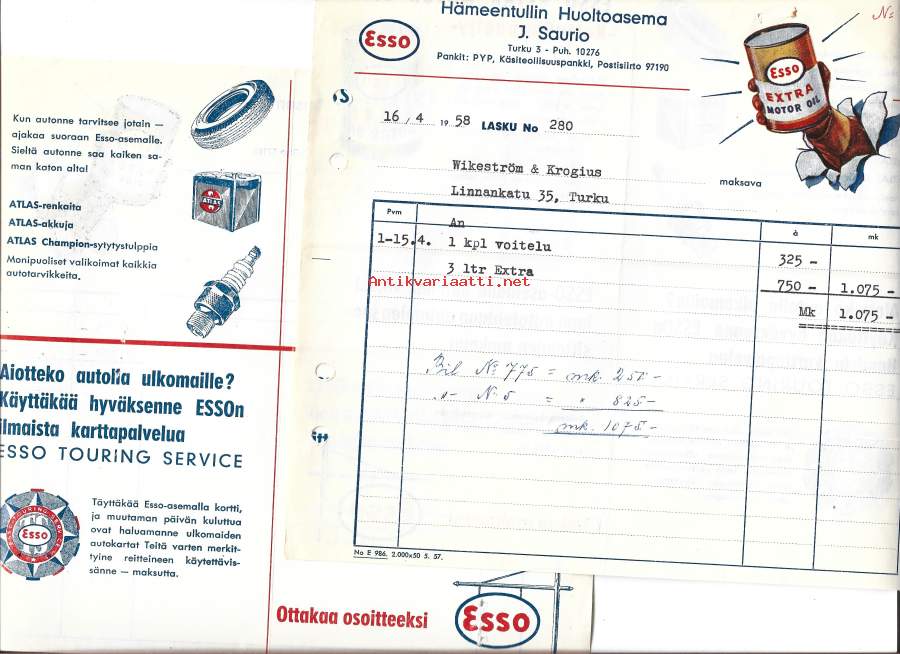 Hämeentullin Huoltoasema
J. Saurio
Turku 3 - Puh. 10276
Pankit: PYP, Käsiteollisuuspankki, Postisiirto 97190
Esso
No
Esso
EXTRA
MOTOR OIL
16/4 1958 LASKU No 280
Wikeström & Krogius
Linnankatu 35, Turku
maksava
Pvm
à
mk
An
1-15.4. 1 kpl voitelu 325 -
3 ltr Extra 750 - 1.075 -
Mk 1.075 -
Bil No 775 = mk. 250-
-"- No 5 = " 825-
mk. 1075-
No E 986. 2.000x50 5. 57.
Antikvariaatti.net
Kun autonne tarvitsee jotain —
ajakaa suoraan Esso-asemalle.
Sieltä autonne saa kaiken sa-
man katon alta!
ATLAS-renkaita
ATLAS-akkuja
ATLAS Champion-sytytystulppia
Monipuoliset valikoimat kaikkia
autotarvikkeita.
ATLAS
Aiotteko autolla ulkomaille?
Käyttäkää hyväksenne ESSOn
ilmaista karttapalvelua
ESSO TOURING SERVICE
Esso
Täyttäkää Esso-asemalla kortti,
ja muutaman päivän kuluttua
ovat haluamanne ulkomaiden
autokartat Teitä varten merkit-
tyine reitteineen käytettävis-
sänne — maksutta.
Ottakaa osoitteeksi
Esso